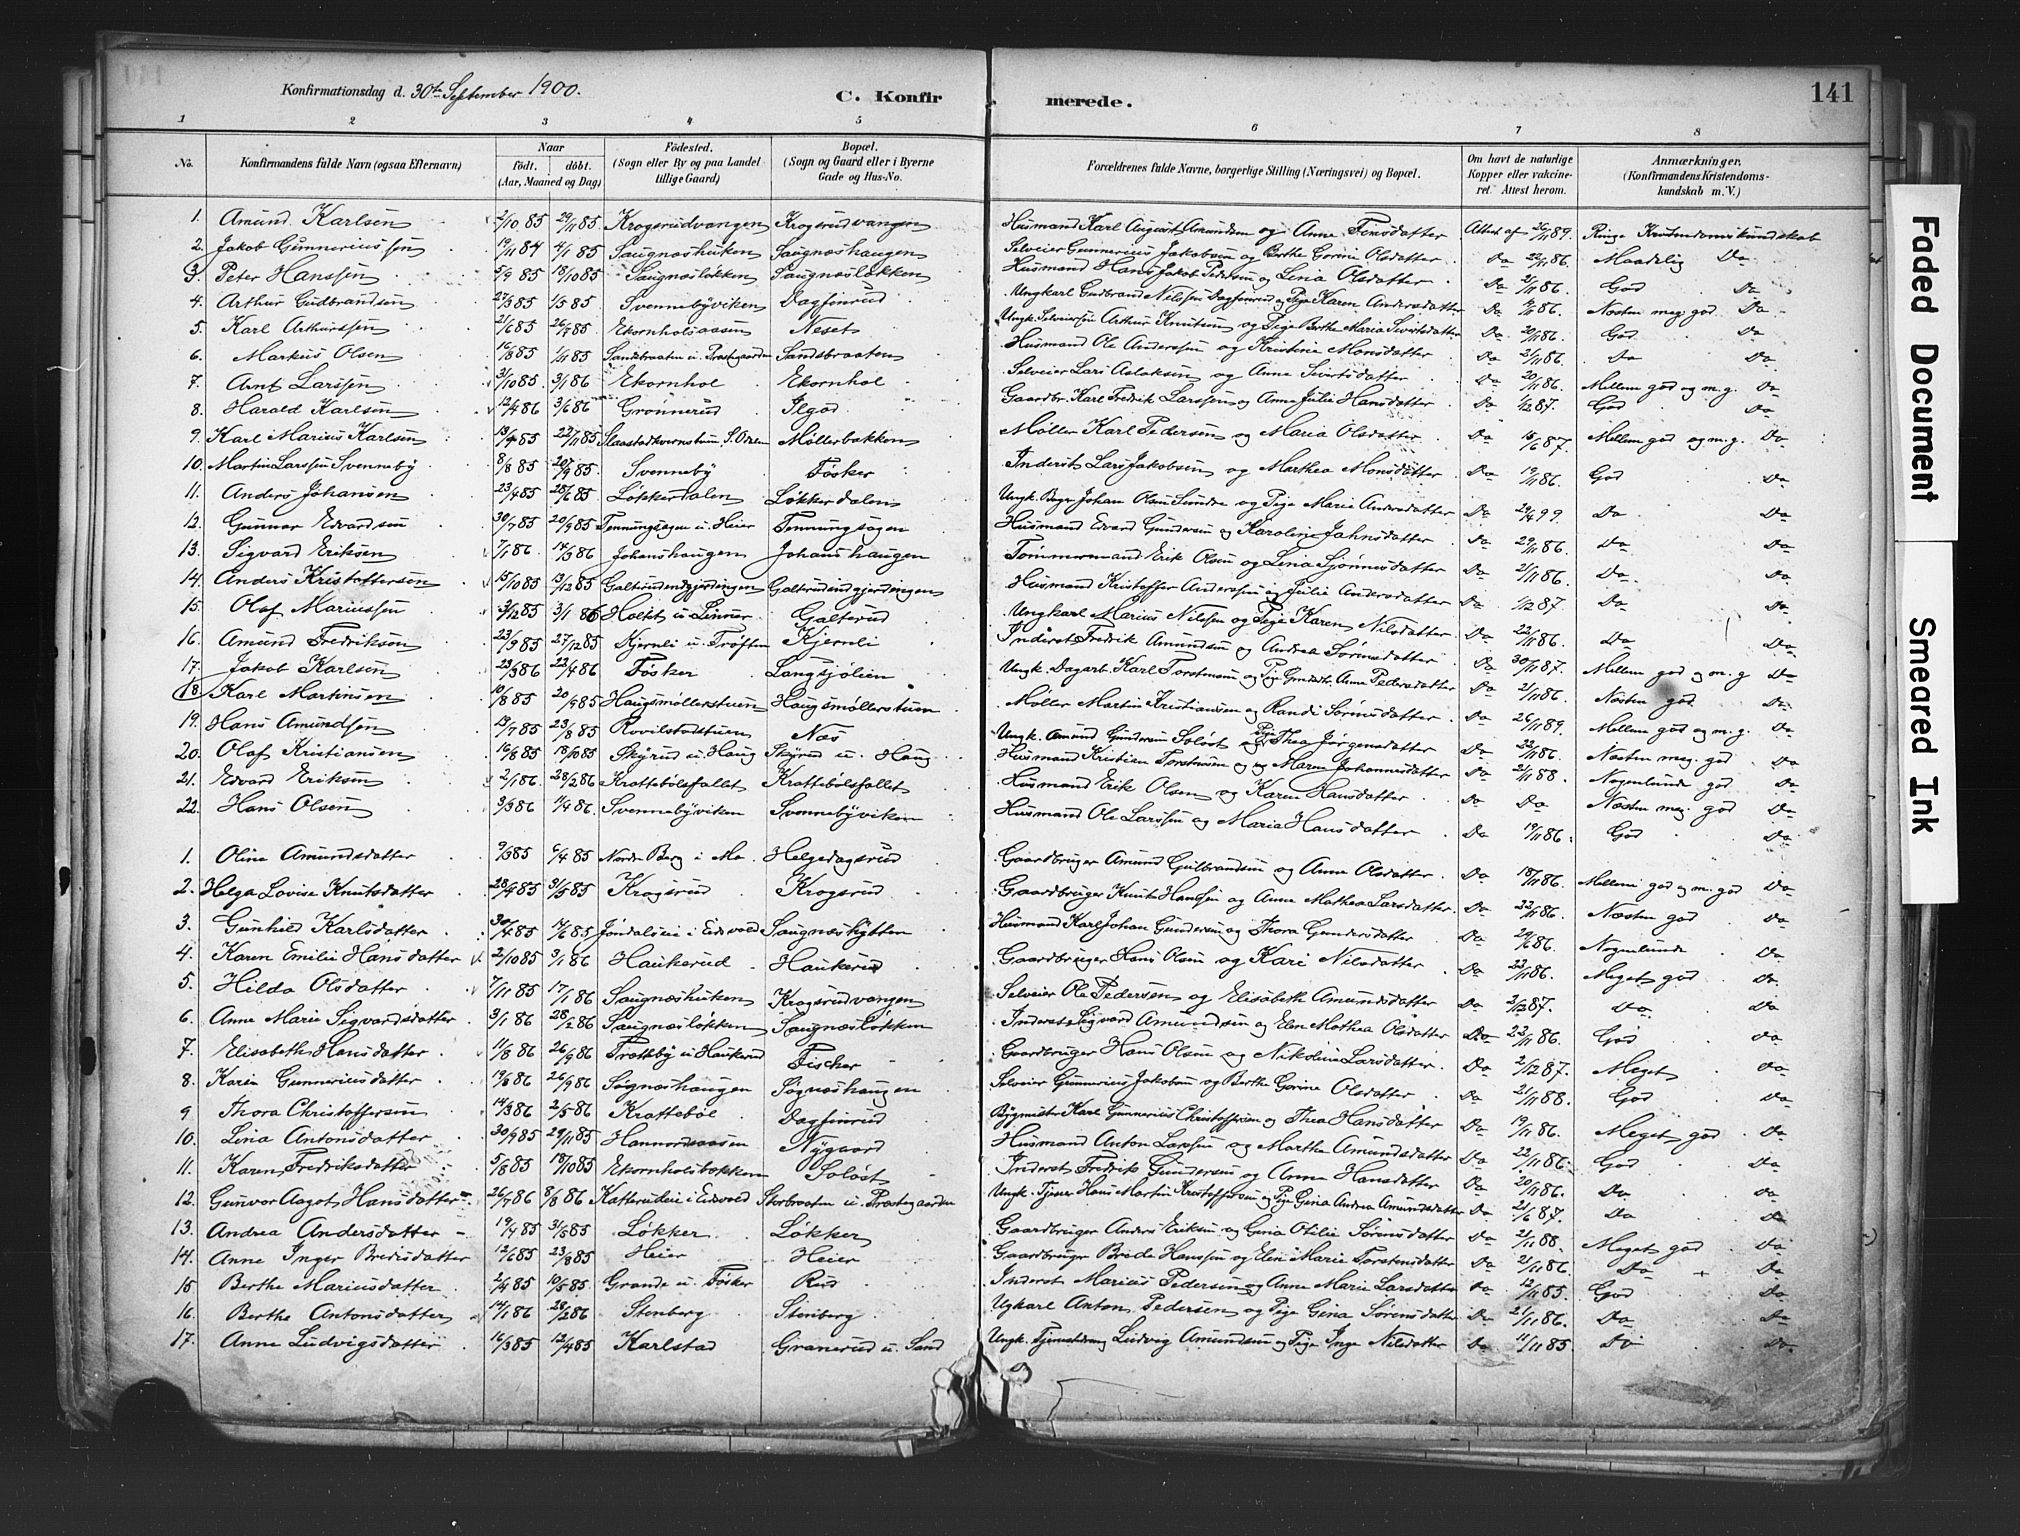 Konfirmationsdag d. 30te September 1900. C. Konfirmerede. 141
1 2 3 4 5 6 7 8
No. Konfirmandens fulde Navn (ogsaa Efternavn) Naar födt. döbt. (Aar, Maaned og Dag) Födested. (Sogn eller By og paa Landet tillige Gaard) Bopæl. (Sogn og Gaard eller i Byerne Gade og Hus-No. Forældrenes fulde Navne, borgerlige Stilling (Næringsvei) og Bopæl. Om havt de naturlige Kopper eller vaccineret. Attest herom. Anmærkninger. (Konfirmandens Kristendomskundskab m. V.)
1. Amund Karlsen 2/10 85 29/11 85 Krogsrudvangen Krogsrudvangen Husmand Karl August Amundsen og Anne Finsdatter Attest af 26/11 89. Ringe Kristendomskundskab
2. Jakob Gunneriussen 19/11 84 4/1 85 Saugnæshuken Saugnæshaugen Selveier Gunnerius Jakobsen og Berthe Gorine Olsdatter Do 22/11 86. Maadelig Do
3. Peter Hanssen 5/9 85 18/10 85 Saugnæsløkken Saugnæsløkken Husmand Hans Jakob Pedersen og Lina Olsdatter Do 2/11 86. God Do
4. Arthur Gudbrandsen 27/3 85 1/5 85 Svennebyviken Dagfinrud Ungkarl Gudbrand Nilssen Dagfinrud og Pige Karen Andersdatter Do /11 86. Næsten meg. god Do
5. Karl Arthurssen 21/6 85 26/7 85 Ekornholsaasen Neset Ungk. Selveiersøn Arthur Knutsen og Pige Berthe Maria Sivertsdatter Do 20/11 86. God Do
6. Markus Olsen 16/8 85 1/11 85 Sandsbraaten u. Præstegaarden Sandsbraaten Husmand Ole Anderssen og Kristine Monsdatter Do 2/11 86. Do Do
7. Arnt Larssen 31/10 85 3/1 86 Ekornhol Ekornhol Selveier Lars Aslaksen og Anne Sivertsdatter Do 20/11 86. Mellem god og m. g. Do
8. Harald Karlsen 12/4 86 3/6 86 Grønnerud Ilgod Gaardbr. Karl Fredrik Larssen og Anne Julie Hansdatter Do 1/12 87. God Do
9. Karl Marius Karlsen 13/4 85 27/7 85 Slaastadkvernstuen, S. Odalen Møllerbakken Møller Karl Pedersen og Maria Olsdatter Do 15/6 87. Mellem god og m. g. Do
10. Martin Larssen Svenneby 8/8 85 20/9 85 Svenneby Føsker Inderst Lars Jakobsen og Marthea Monsdatter Do 19/11 86. God Do
11. Anders Johansen 23/4 85 28/6 85 Løkkerdalen Løkkerdalen Ungk. Bagr Johan Olsen Sundre og Pige Marie Andersdatter Do 29/4 99. Do Do
12. Gunnar Edvardsen 30/7 85 20/9 85 Tennungsagen u. Heier Tennungsagen Husmand Edvard Gundersen og Karoline Jahnsdatter Do 29/11 86. Do Do
13. Sigvard Eriksen 7/1 86. 14/3 86 Johanshaugen Johanshaugen Tømmermand Erik Olsen og Lina Sjønnesdatter Do 2/11 86. Do Do
14. Anders Kristoffersen 15/10 85 13/12 85 Galterudendgjerdingen Galterudendgjerdingen Husmand Kristoffer Anderssen og Julie Andersdatter Do 1/12 87. Do Do
15. Olaf Mariussen 3/12 85 3/1 86 Holtet u Linner Galterud Ungkarl Marius Nilssen og Pige Karen Nilsdatter Do 22/11 86. Do Do
16. Amund Fredriksen 23/9 85 27/12 85 Kjernli u. Trøften Kjernli Inderst Fredrik Amundsen og Andrea Sørensdatter Do 30/11 87. Mellem god og m. g Do
17. Jakob Karlsen 23/3 86 22/4 86 Føsker Langsjølien Ungk. Dagarb. Karl Torstensen og Pige Anne Pedersdatter Do 2/11 86. Næsten god Do
18. Karl Martinsen 10/8 85 20/9 85 Haugsmøllerstuen Haugsmøllerstuen Møller Martin Kristiansen og Randi Sørensdatter Do 26/11 89. Mellem god og m. g. Do
19. Hans Amundsen 13/7 85 23/8 85 Rovilstadstuen Næs Ungk. Amund Gundersen Soløst og Pige Thea Jørgensdatter Do 22/11 86. Næsten meg. god Do
20. Olaf Kristiansen 16/8 85 18/10 85 Skyrud u. Haug Skyrud u. Haug Husmand Kristian Torstensen og Maren Johannesdatter Do 2/11 88. Nogenlunde god Do
21. Edvard Eriksen 2/1 86. 28/2 86 Krattebølsfallet Krattebølsfallet Husmand Erik Olsen og Karen Hansdatter Do Do Næsten meg. god Do
22. Hans Olsen 3/3 86 11/4 86. Svennebyviken Svennebyviken Husmand Ole Larssen og Maria Hansdatter Do 19/11 86. God Do
1. Oline Amundsdatter 9/3 85 6/4 85 Nordre Berg i Mo Helgedagsrud Gaardbruger Amund Gulbrandsen og Anne Olsdatter Do 18/11 86. Mellem god og m. god Do
2. Helga Lovise Knutsdatter 28/4 85 31/5 85 Krogsrud Krogsrud Gaardbruger Knut Hanssen og Anne Mathea Larsdatter Do 22/11 86. Næsten god Do
3. Gunhild Karlsdatter 30/4 85 14/6 85 Jøndalseie i Eidsvold Saugnæshytten Husmand Karl Johan Gundersen og Thora Gundersdatter Do 29/6 86. Nogenlunde Do
4. Karen Emilie Hansdatter 2/10 85 3/1 86 Haukerud Haukerud Gaardbruger Hans Olsen og Kari Nilsdatter Do 23/11 86. Meget god Do
5. Hilda Olsdatter 7/11 85 17/1 86 Saugnæshuken Krogsrudvangen Selveier Ole Pedersen og Elisabeth Amundsdatter Do 2/12 87. Do Do
6. Anne Marie Sigvardsdatter 3/1 86 28/2 86 Saugnæsløkken Saugnæsløkken Inderst Sigvard Amundsen og Elen Mathea Olsdatter Do 22/11 86. God Do
7. Elisabeth Hansdatter 11/8 86 26/9 86 Trøttby u Haukerud Fischer Gaardbruger Hans Olsen og Nikoline Larsdatter Do 2/12 87. Meget Do
8. Karen Gunneriusdatter 19/8 86 26/9 86 Sognæshaugen Sognæshaugen Selveier Gunnerius Jakobsen og Berthe Gorine Olsdatter Do 21/11 88. God Do
9. Thora Christoffersen 14/3 86 2/5 86 Krattebøl Dagfinrud Bygmester Karl Gunnerius Christoffersen og Thea Hansdatter Do 19/11 86. Meget god Do
10. Lina Antonsdatter 30/9 85 29/11 85 Hannordsaasen Nygaard Husmand Anton Larssen og Marthe Amundsdatter Do 22/11 86. God Do
11. Karen Fredriksdatter 5/8 85 18/10 85 Ekornholsbakken Soløst Inderst Fredrik Gundersen og Anne Hansdatter Do 20/11 86. Do Do
12. Gunvor Aagot Hansdatter 26/7 86 8/8 86 Katterudeie i Eidsvold Storbraaten u. Præstegaarden Ungk. Tjener Hans Martin Kristoffersen og Pige Gina Andrea Amundsdatter Do 21/6 87. Do Do
13. Andrea Andersdatter 19/4 85 31/5 85 Løkker Løkker Gaardbruger Anders Eriksen og Gina Otilie Sørensdatter Do 2/11 88. Meget god Do
14. Anne Inger Bredesdatter 12/6 85 23/8 85 Heier Heier Gaardbruger Brede Hanssen og Elen Marie Torstensdatter Do 2/11 86. Do Do
15 Berthe Mariusdatter 2/4 85 10/5 85. Grande u. Føsker Rud Inderst Marius Pedersen og Anne Marie Larsdatter Do 12/11 85. God Do
16. Berthe Antonsdatter 14/1 86 28/2 86 Stenberg Stenberg Ugkarl Anton Pedersen og Pige Gina Sørensdatter Do 21/11 86. Do Do
17. Anne Ludvigsdatter 16/3 85 12/4 85 Karlstad Granerud u. Sand Ungk. Tjenestedreng Ludvig Amundsen og Pige Inge Nilsdatter Do 11/11 85. Do Do.
Faded Document Smeared Ink